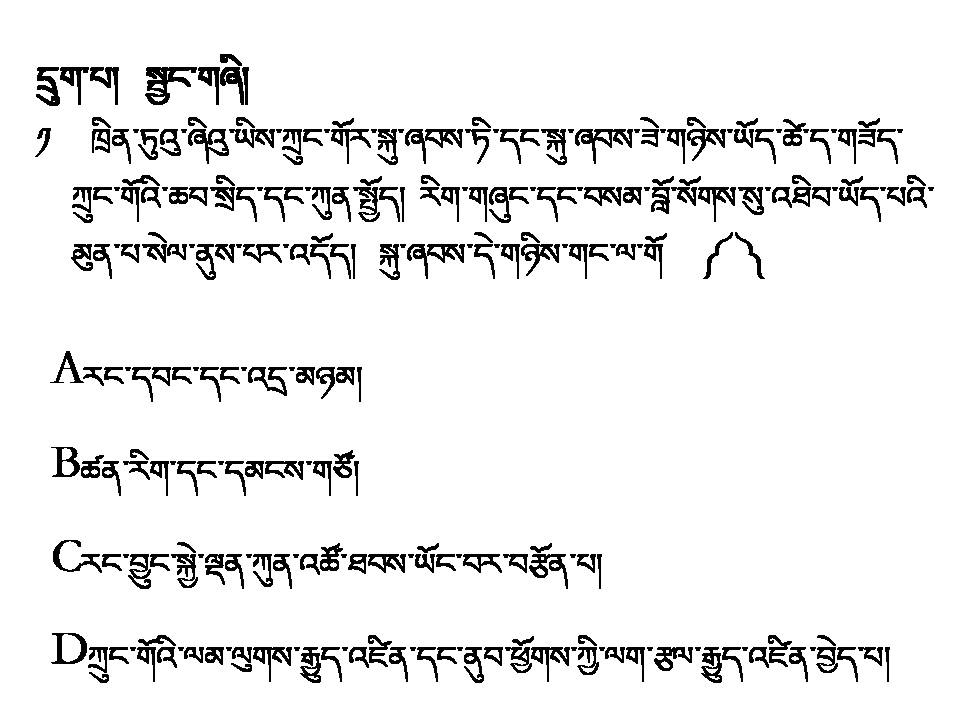 དྲུག་པ།  སྦྱང་གཞི།
༡ ཁྲིན་ཏུའུ་ཞིའུ་ཡིས་ཀྲུང་གོར་སྐུ་ཞབས་ཏི་དང་སྐུ་ཞབས་ཟེ་གཉིས་ཡོད་ཚེ་ད་གཟོད་
ཀྲུང་གོའི་ཆབ་སྲིད་དང་ཀུན་སྤྱོད། རིག་གཞུང་དང་བསམ་བློ་སོགས་སུ་འཐིབ་ཡོད་པའི་
མུན་པ་སེལ་ནུས་པར་འདོད།  སྐུ་ཞབས་དེ་གཉིས་གང་ལ་གོ ༼ ༽
Aརང་དབང་དང་འདྲ་མཉམ།
Bཚན་རིག་དང་དམངས་གཙོ།
Cརང་བྱུང་སྐྱེ་ལྡན་ཀུན་འཚོ་ཐབས་ཡོང་བར་བརྩོན་པ།
Dཀྲུང་གོའི་ལམ་ལུགས་རྒྱུད་འཛིན་དང་ནུབ་ཕྱོགས་ཀྱི་ལག་རྩལ་རྒྱུད་འཛིན་བྱེད་པ།